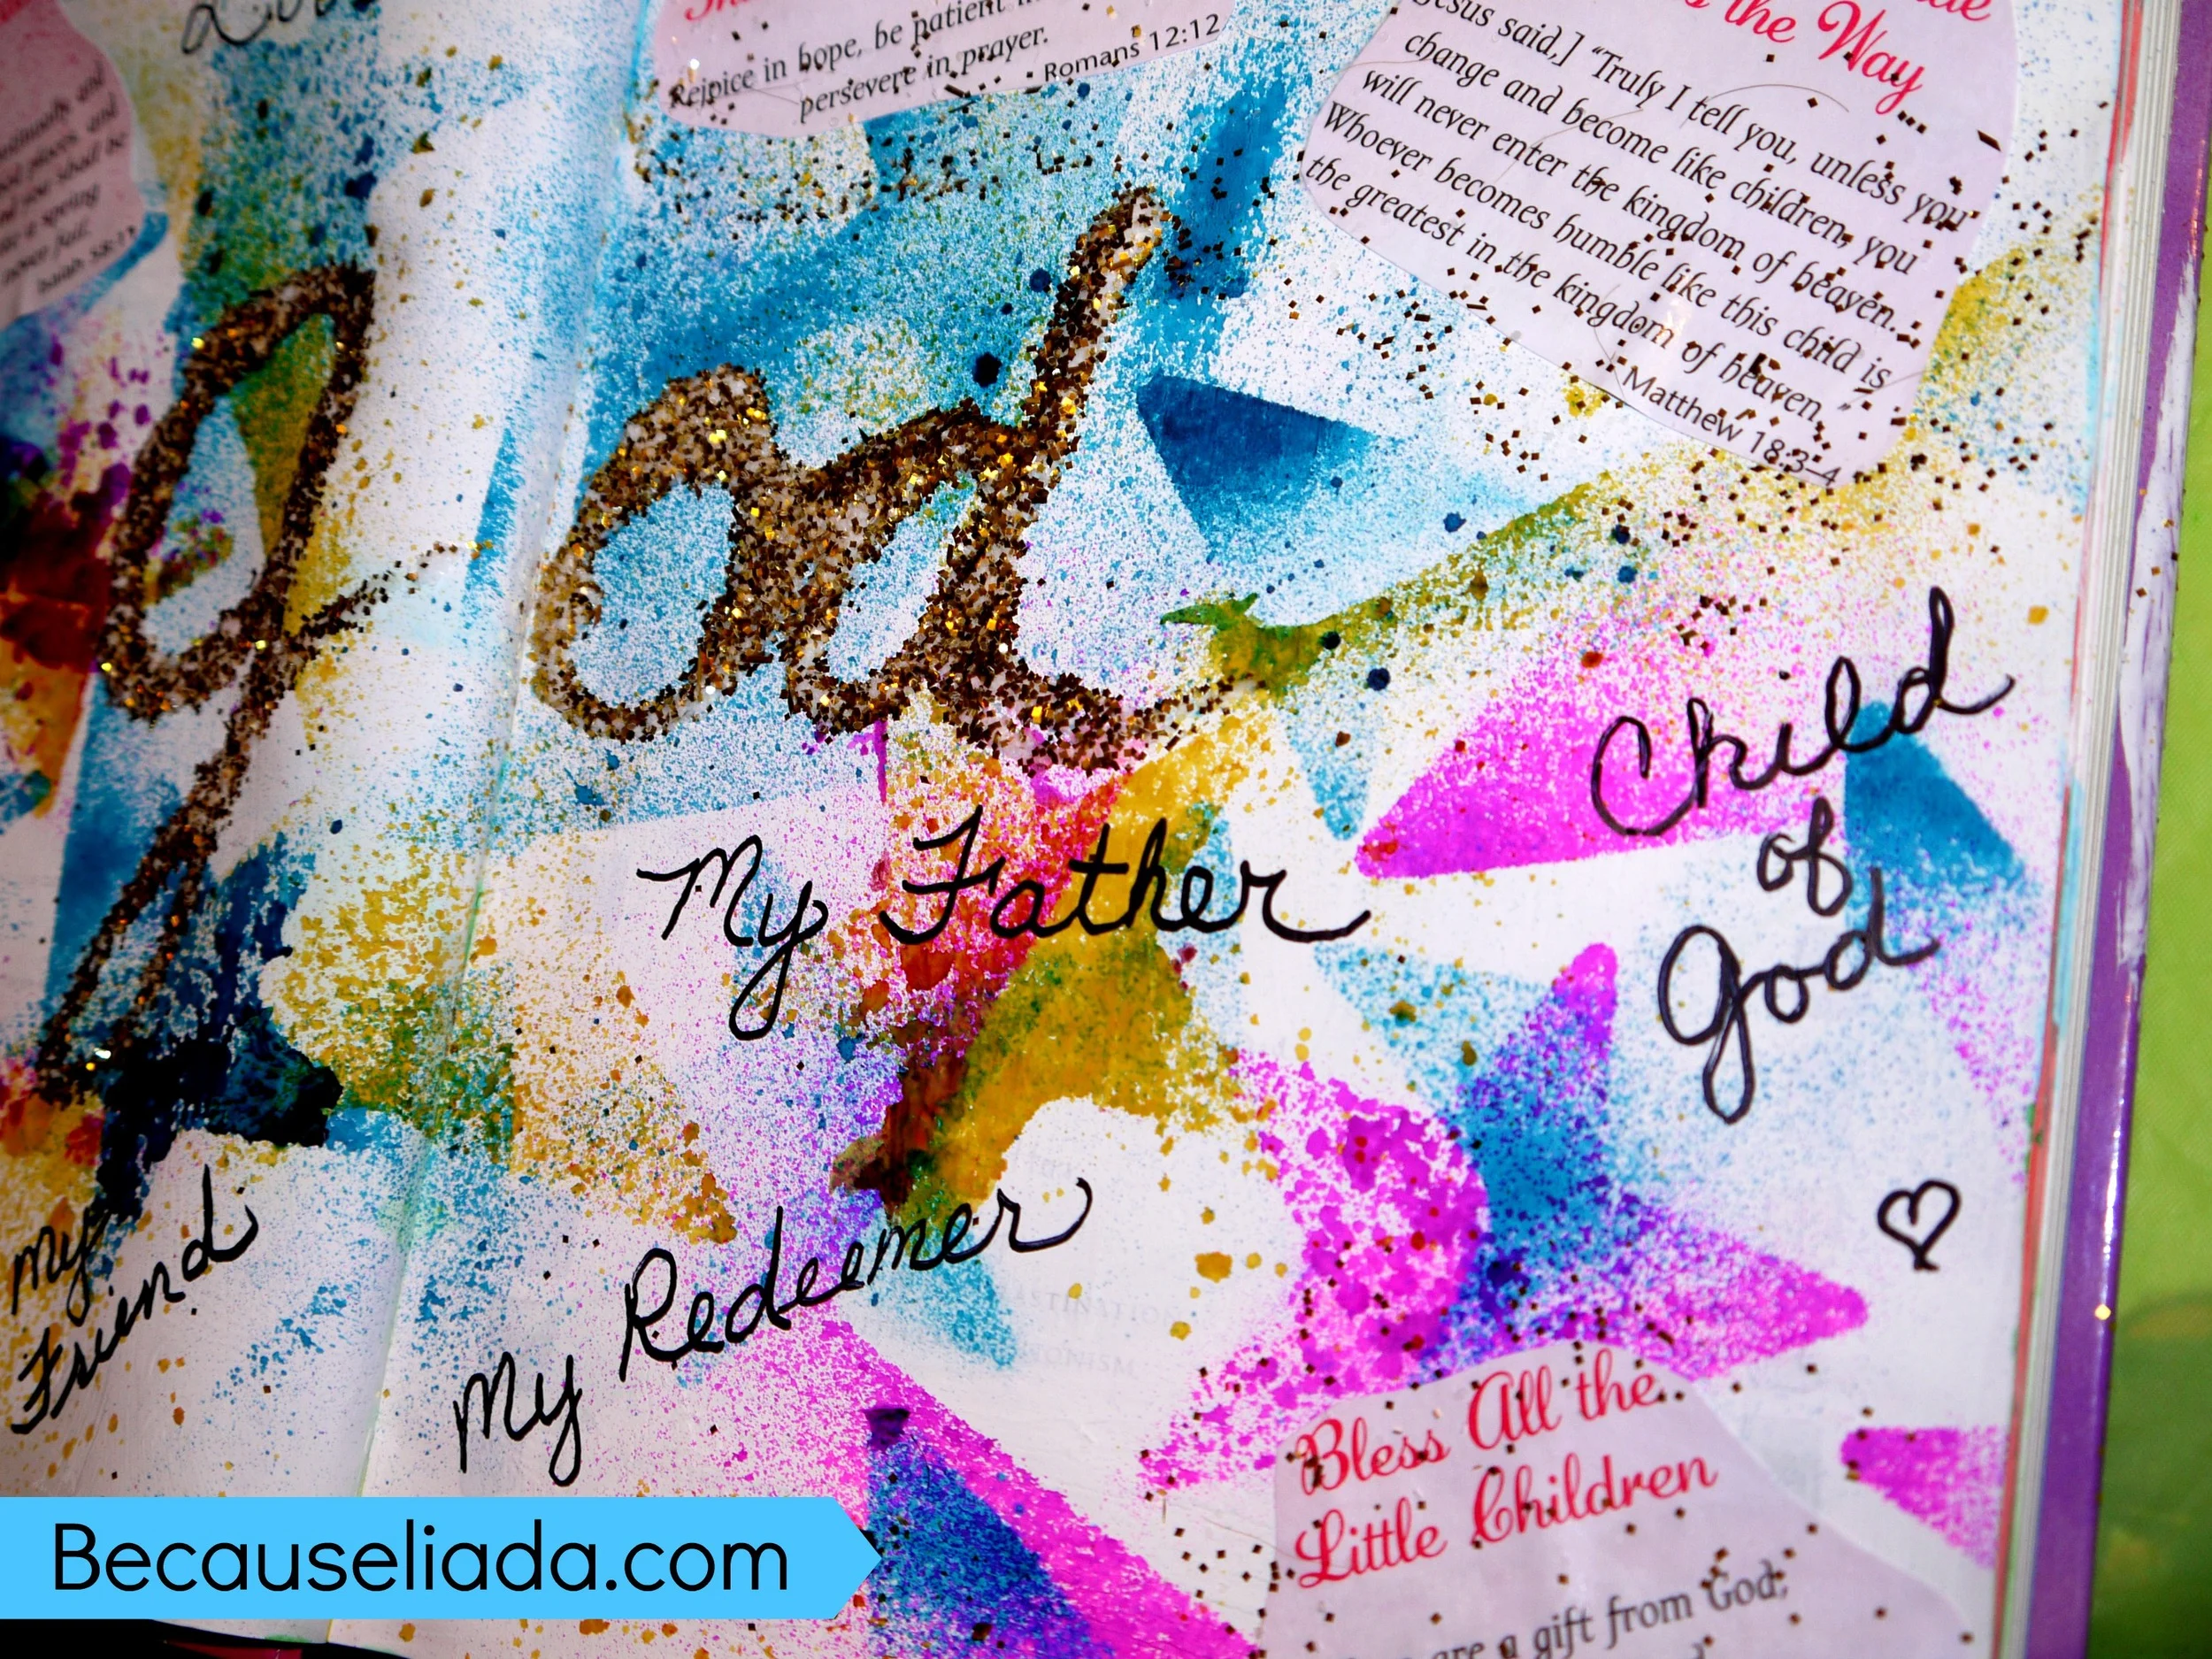 Rejoice in hope, be patient in
persevere in prayer.
Romans 12:12
the Way...
Jesus said,] "Truly I tell you, unless you
change and become like children, you
will never enter the kingdom of heaven.
Whoever becomes humble like this child is
the greatest in the kingdom of heaven."
Matthew 18:3–4
never fail.
Isaiah 58:11
god
Child
of
God
My Father
My Redeemer
my
Friend
Bless All the
Little Children
are a gift from God;
Becauseliada.com